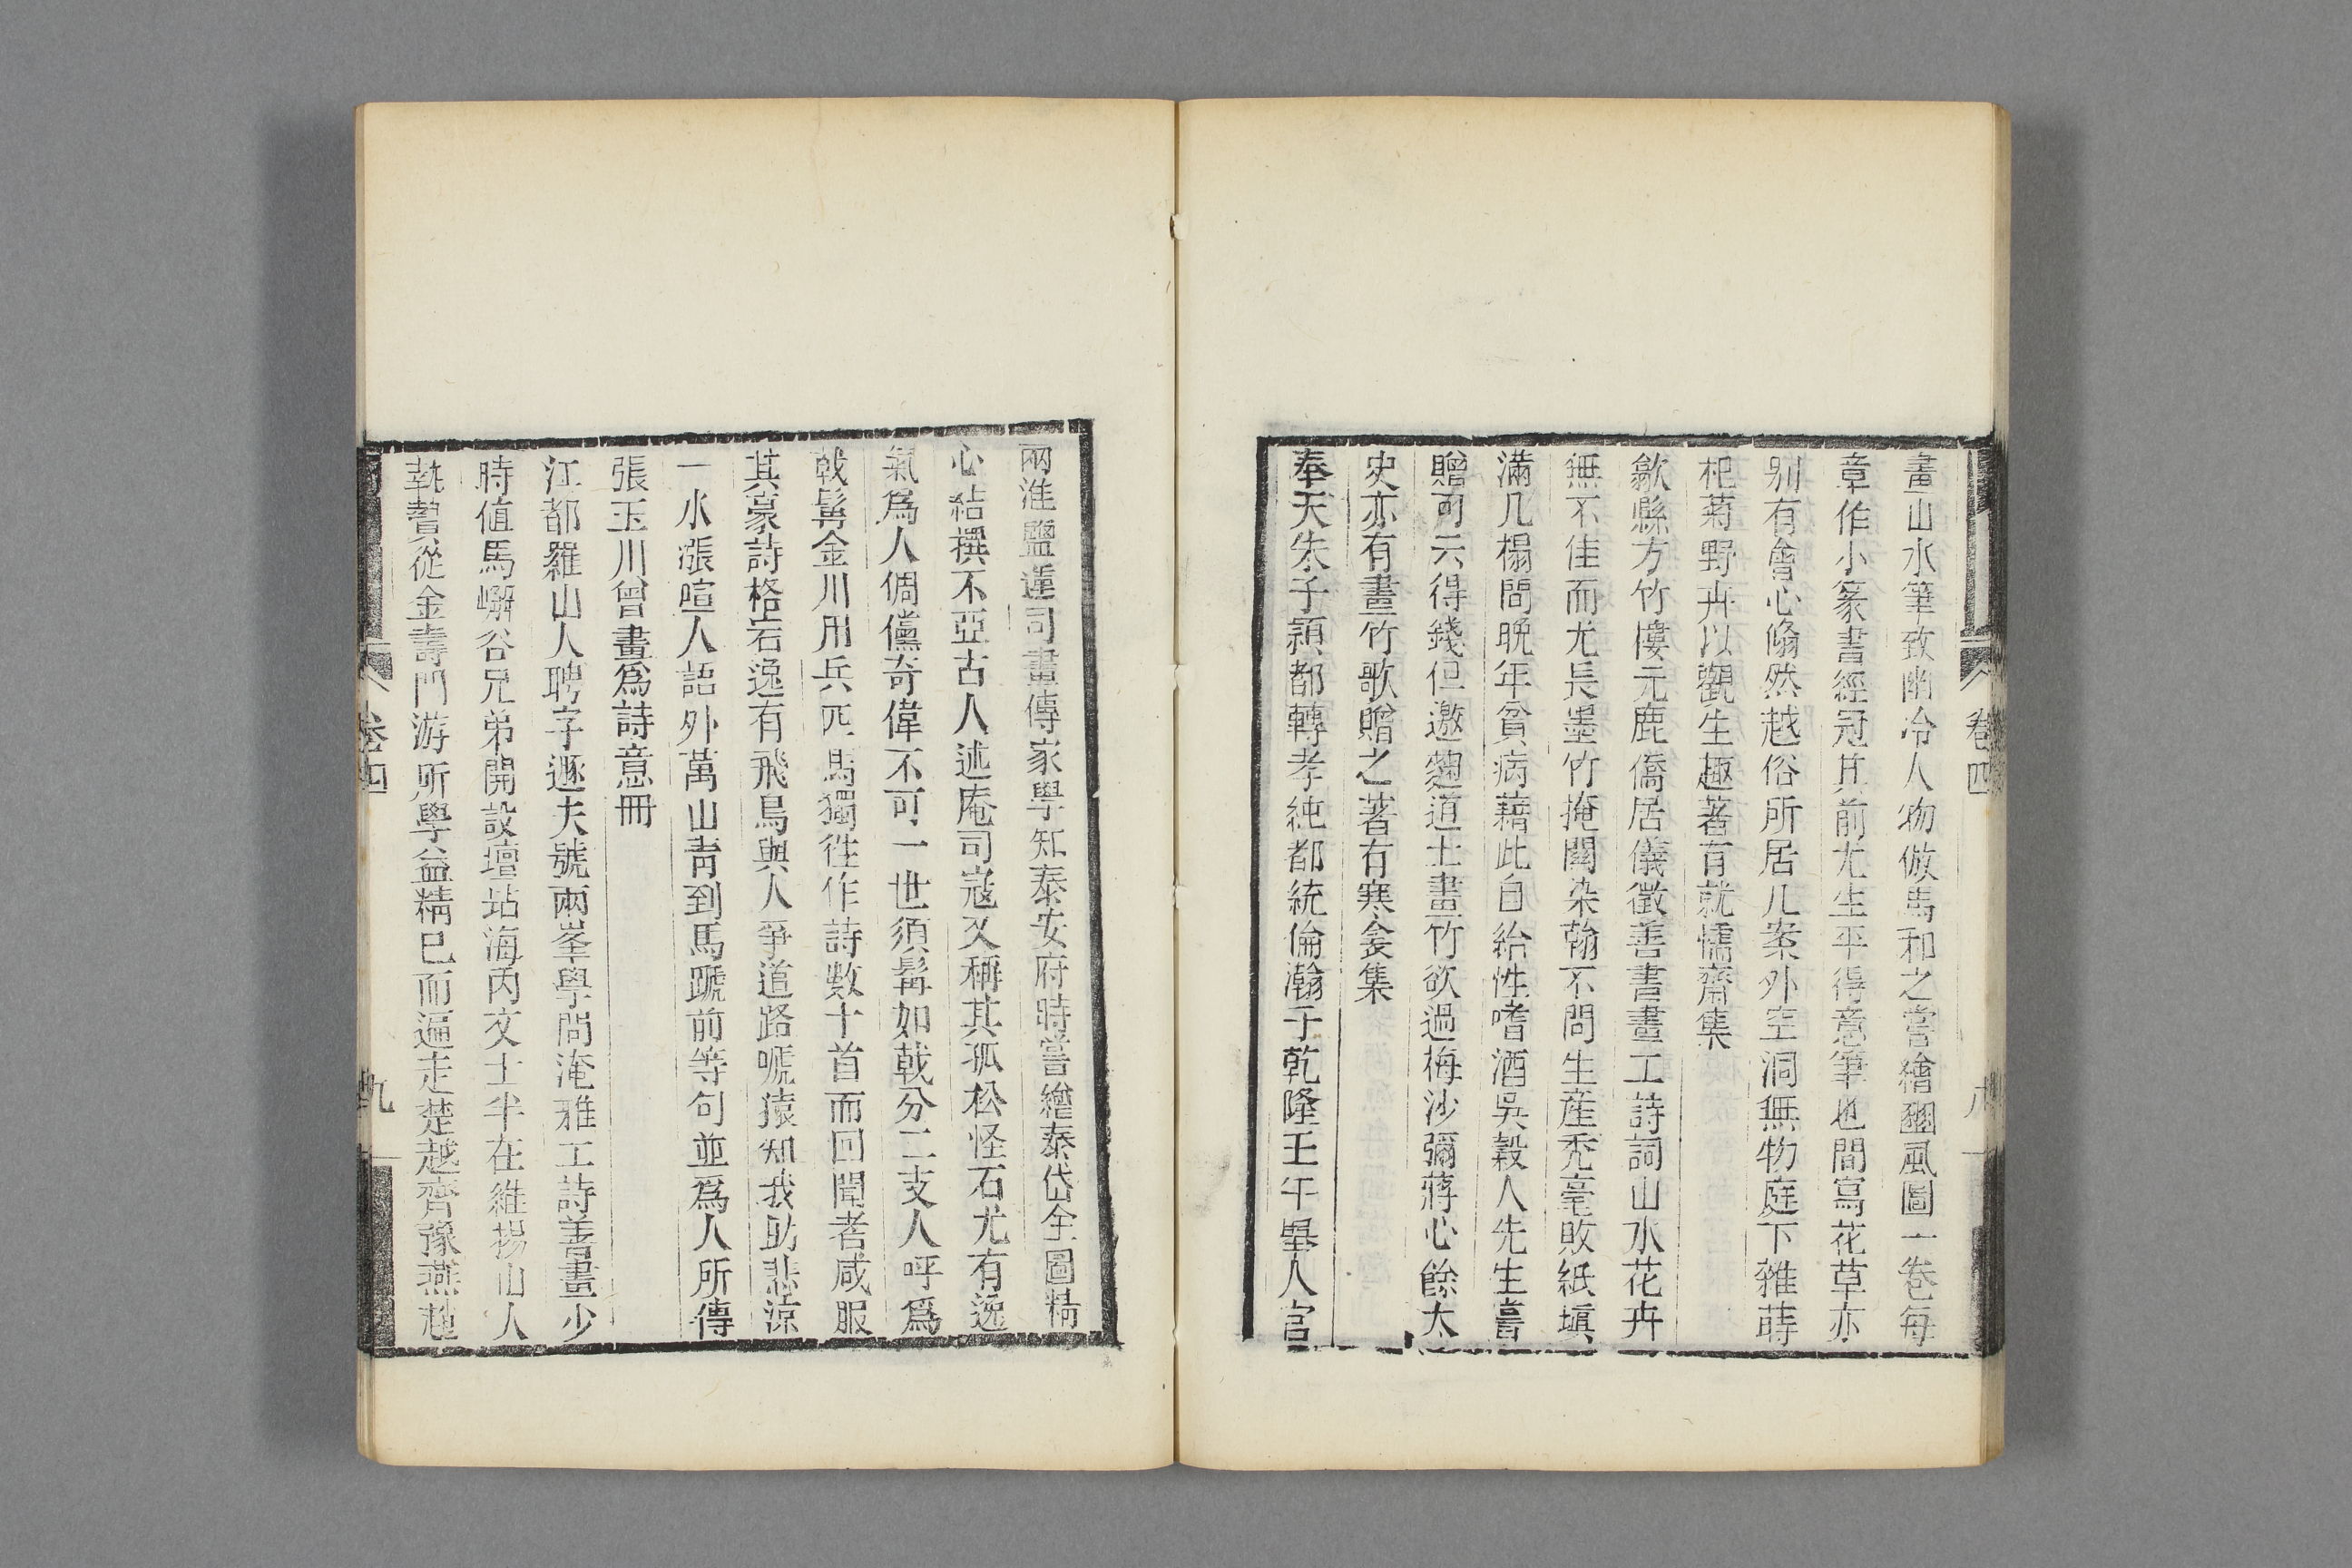 畫山水筆致幽冷人物倣馬和之嘗繪豳風圖一卷每
章作小篆書經冠其前尤生平得意筆也間寫花草亦
别有會心翛然越俗所居几案外空洞無物庭下雜蒔
杞菊野卉以觀生趣著有就懦齋集
歙縣方竹樓元鹿僑居儀徵善書畫工詩詞山水花卉
無不佳而尤長墨竹掩關染翰不問生産秃毫敗紙塡
滿几榻間晚年貧病藉此自給性嗜酒吳榖人先生嘗
贈句云得錢但邀麴道士畫竹欲過梅沙彌蔣心餘太
史亦有畫竹歌贈之著有寒衾集
奉天朱子頴都轉孝純都統倫瀚子乾隆壬午舉人官
卷四 八
兩淮鹽運司畫傳家學知泰安府時嘗繪泰岱全圖精
心結撰不亞古人述庵司寇又稱其孤松怪石尤有逸
氣爲人倜儻奇偉不可一世須髯如戟分二支人呼爲
戟髯金川用兵匹馬獨往作詩數十首而回聞者咸服
其豪詩格宕逸有飛鳥與人爭道路嗁猿知我助悲涼
一水漲喧人語外萬山靑到馬蹏前等句並爲人所傳
張玉川曾畫爲詩意冊
江都羅山人聘字遯夫號兩峯學問淹雅工詩善畫少
時值馬嶰谷兄弟開設壇坫海內文士半在維揚山人
執贄從金壽門游所學益精已而遍走楚越齊豫燕趙
卷四 九